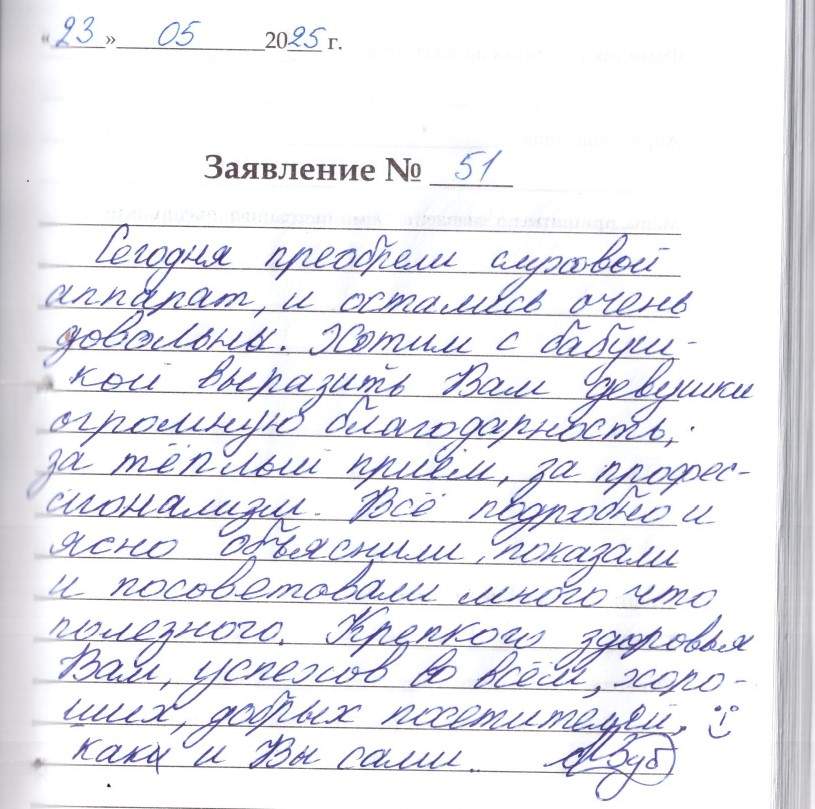 «23» 05 2025 г.
Заявление № 51
Сегодня преобрели слуховой
аппарат, и остались очень
довольны. Хотим с бабуш-
кой выразить Вам девушки
огромную благодарность,
за тёплый приём, за профес-
сионализм. Всё подробно и
ясно объяснили, показали
и посоветовали много что
полезного. Крепкого здоровья
Вам, успехов во всём, хоро-
ших, добрых посетителей,
как и Вы сами.